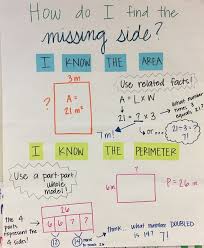 How do I find the
missing side?
I KNOW THE AREA
3 m
?
A =
21 m²
Use related facts!
A = L x W
21 = ? x 3
What number
times 3
equals 21?
or...
21÷3=?
7!
7m!
I KNOW THE PERIMETER
Use a part-part
whole model!
6m
?
P=26m
26
6 6 ? ?
The 4
parts
represent the
4 sides!
12
14
think... what number DOUBLED
is 14? 7!